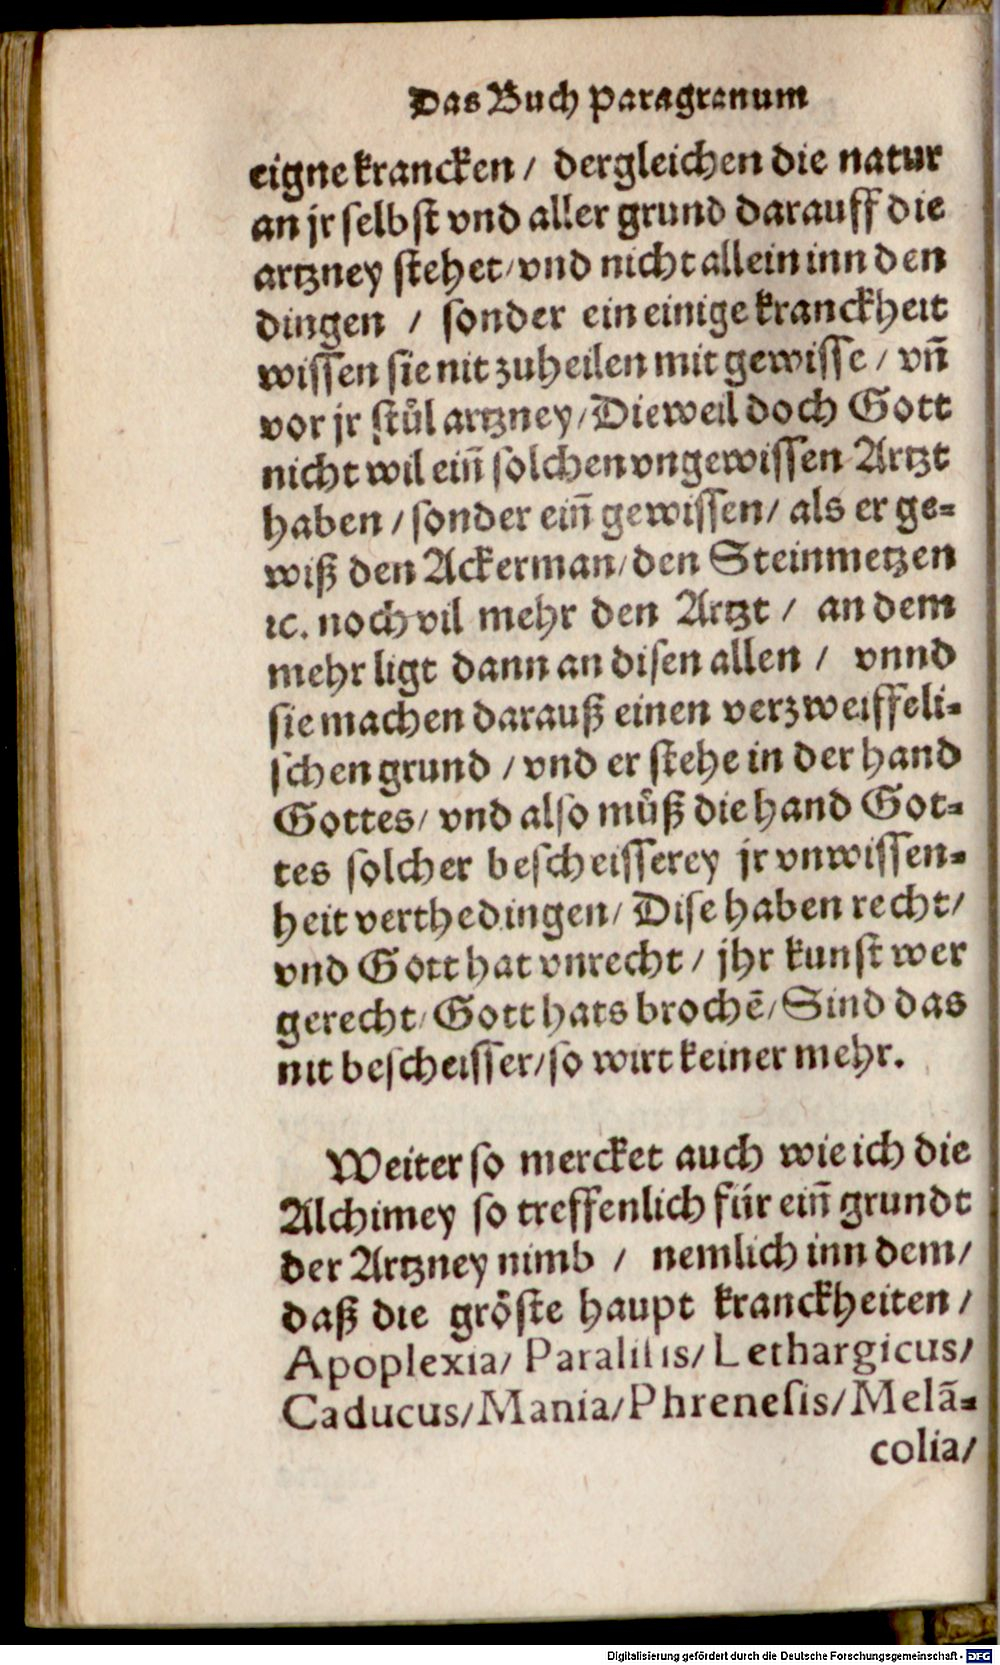 Das Buch Paragranum
eigne krancken / dergleichen die natur
an jr selbst vnd aller grund darauff die
artzney stehet / vnd nicht allein inn den
dingen / sonder ein einige kranckheit
wissen sie nit zuheilen mit gewisse / vñ
vor jr stůl artzney / Dieweil doch Gott
nicht wil eiñ solchen vngewissen Artzt
haben / sonder eiñ gewissen / als er ge-
wiß den Ackerman / den Steinmetzen
ꝛc. noch vil mehr den Artzt / an dem
mehr ligt dann an disen allen / vnnd
sie machen darauß einen verzweiffeli-
schen grund / vnd er stehe in der hand
Gottes / vnd also můß die hand Got-
tes solcher bescheisserey jr vnwissen-
heit verthedingen / Dise haben recht /
vnd Gott hat vnrecht / jhr kunst wer
gerecht / Gott hats brochẽ / Sind das
nit bescheisser / so wirt keiner mehr.
Weiter so mercket auch wie ich die
Alchimey so treffenlich für eiñ grundt
der Artzney nimb / nemlich inn dem /
daß die gröste haupt kranckheiten /
Apoplexia / Paralisis / Lethargicus /
Caducus / Mania / Phrenesis / Melã-
colia /
Digitalisierung gefördert durch die Deutsche Forschungsgemeinschaft - DFG